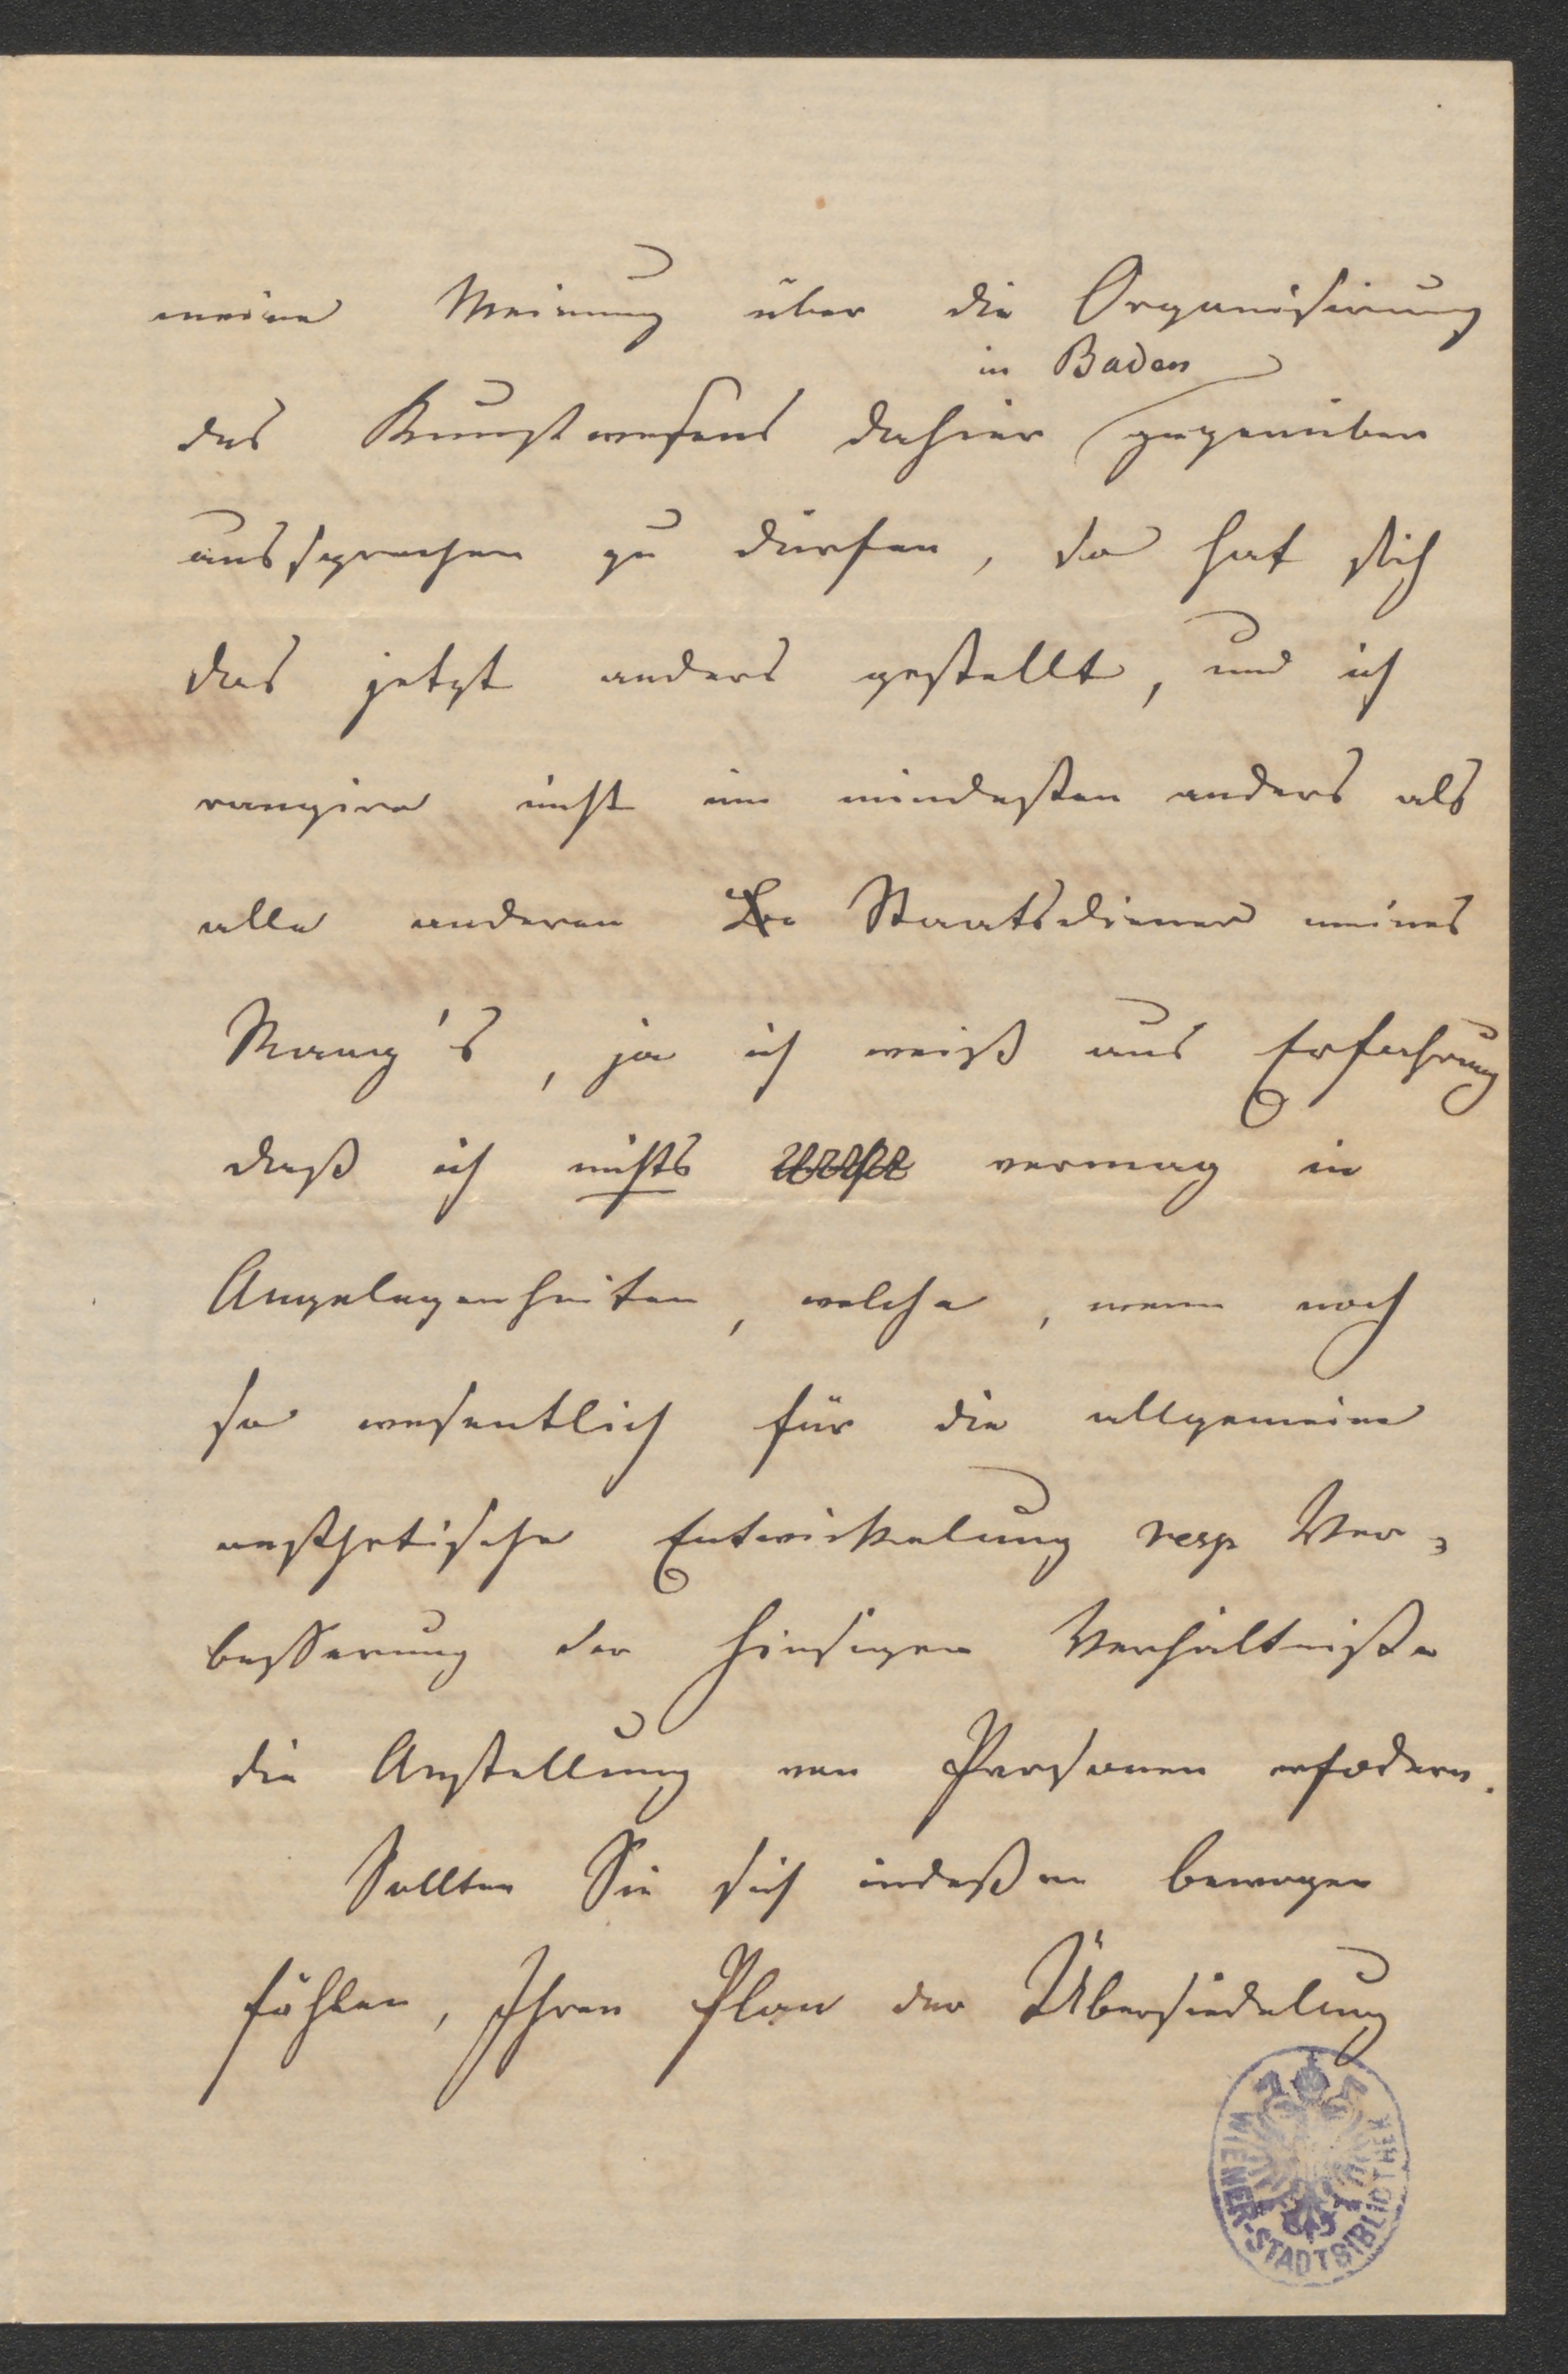 meine Meinung über die Organisirung
in Baden
des Kunstwesens dahier gegenüber
aussprechen zu dürfen, so hat sich
das jetzt anders gestellt, und ich
rangire nicht im mindesten anders als
alle anderen Staatsdiener meines
Rang's, ja ich weiß aus Erfahrung
daß ich nichts vermag in
Angelegenheiten, welche, wenn noch
so wesentlich für die allgemeine
aesthetische Entwickelung resp Ver-
besserung der hiesigen Verhältniße
die Anstellung von Personen erfodern.
Sollten Sie sich indeßen bewogen
fühlen, Ihren Plan der Übersiedelung
WIENER-STADTBIBLIOTHEK